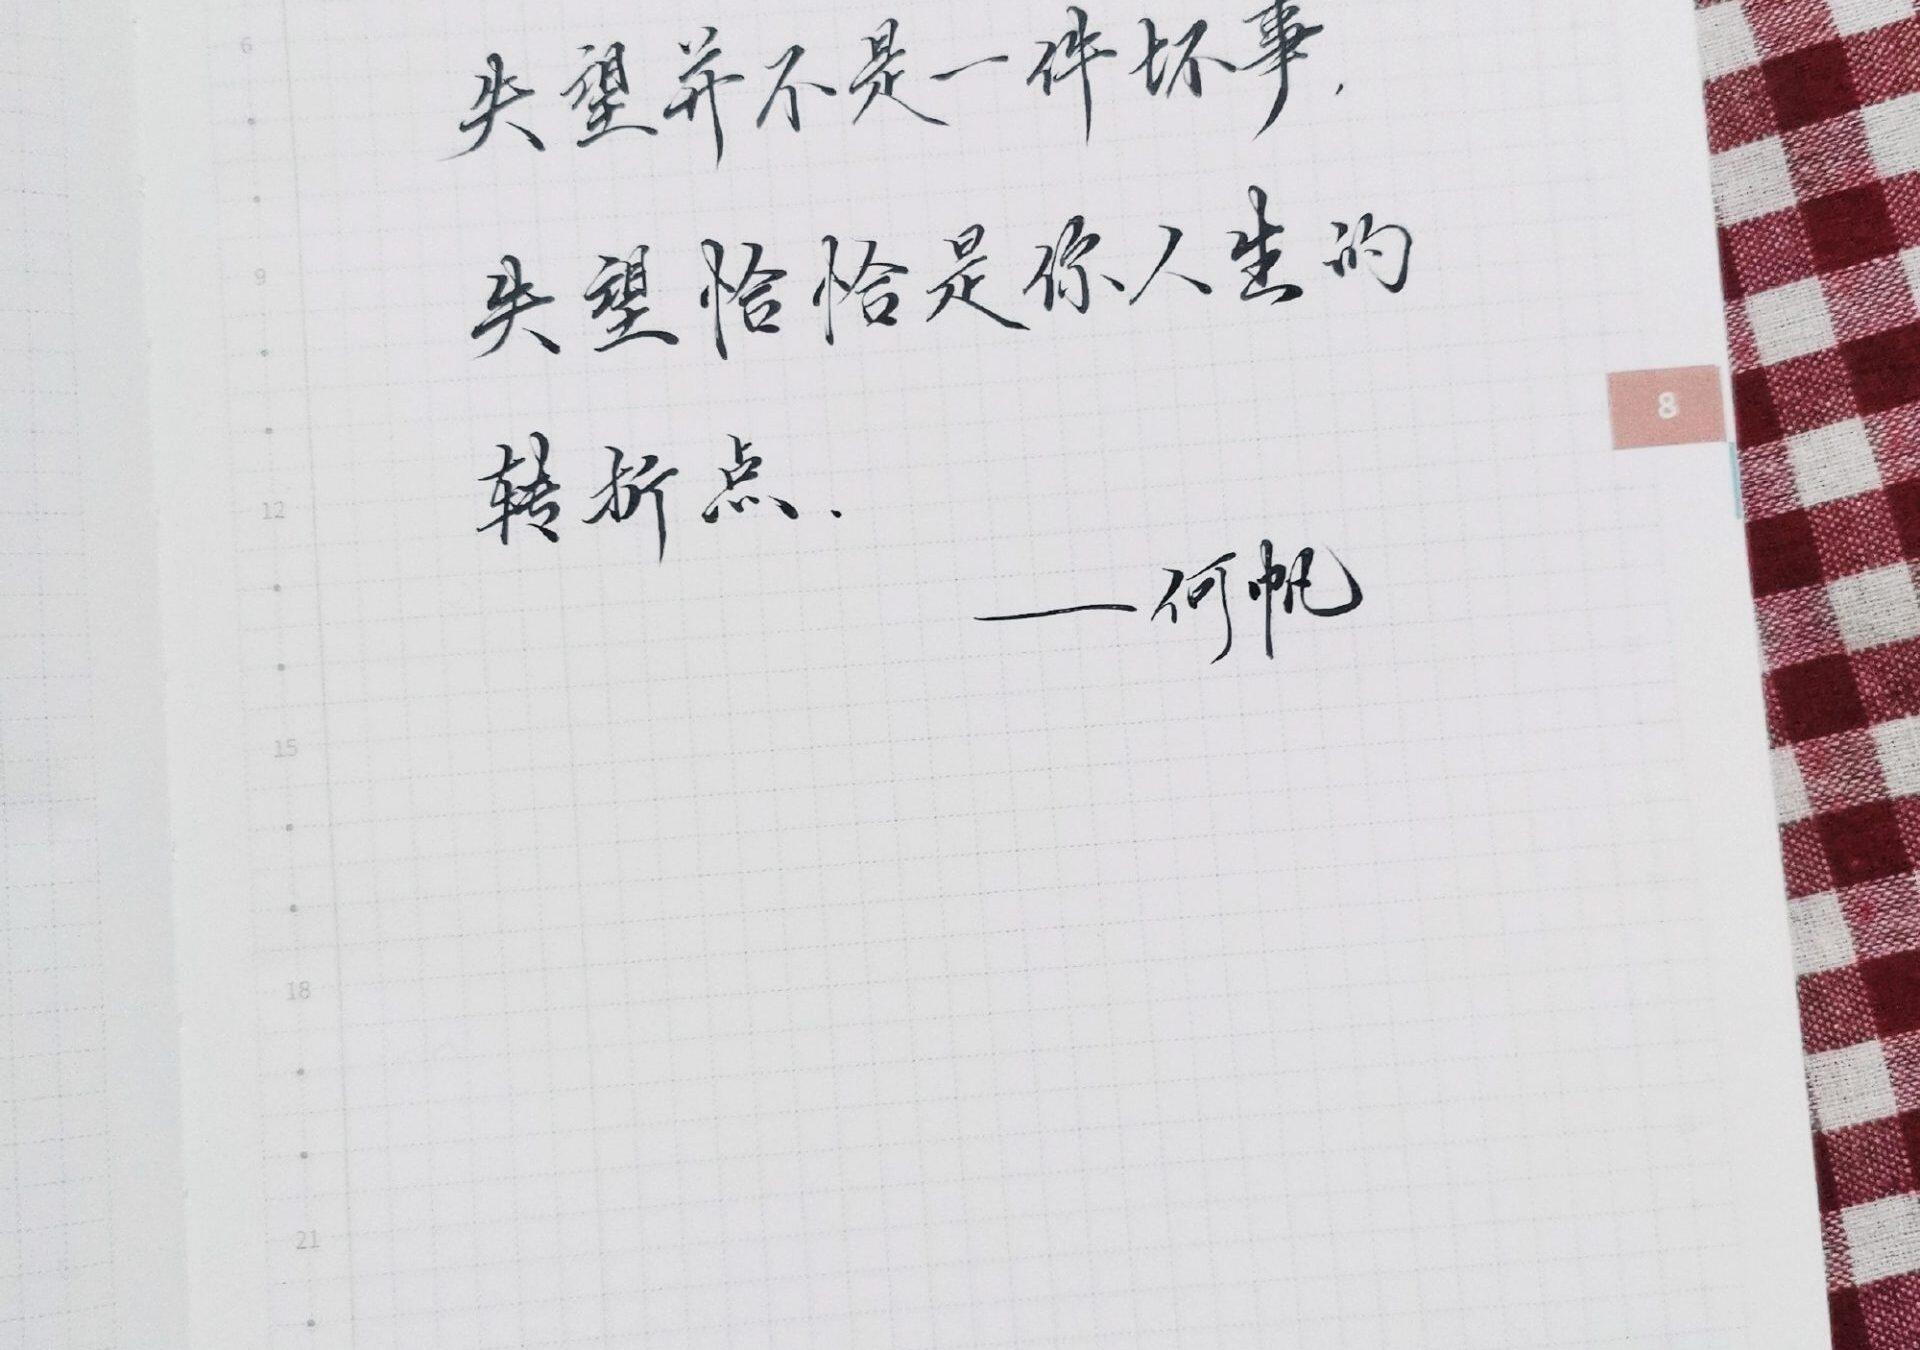 6
失望并不是一件坏事,
9
失望恰恰是你人生的
8
12
转折点.
——何帆
15
18
21